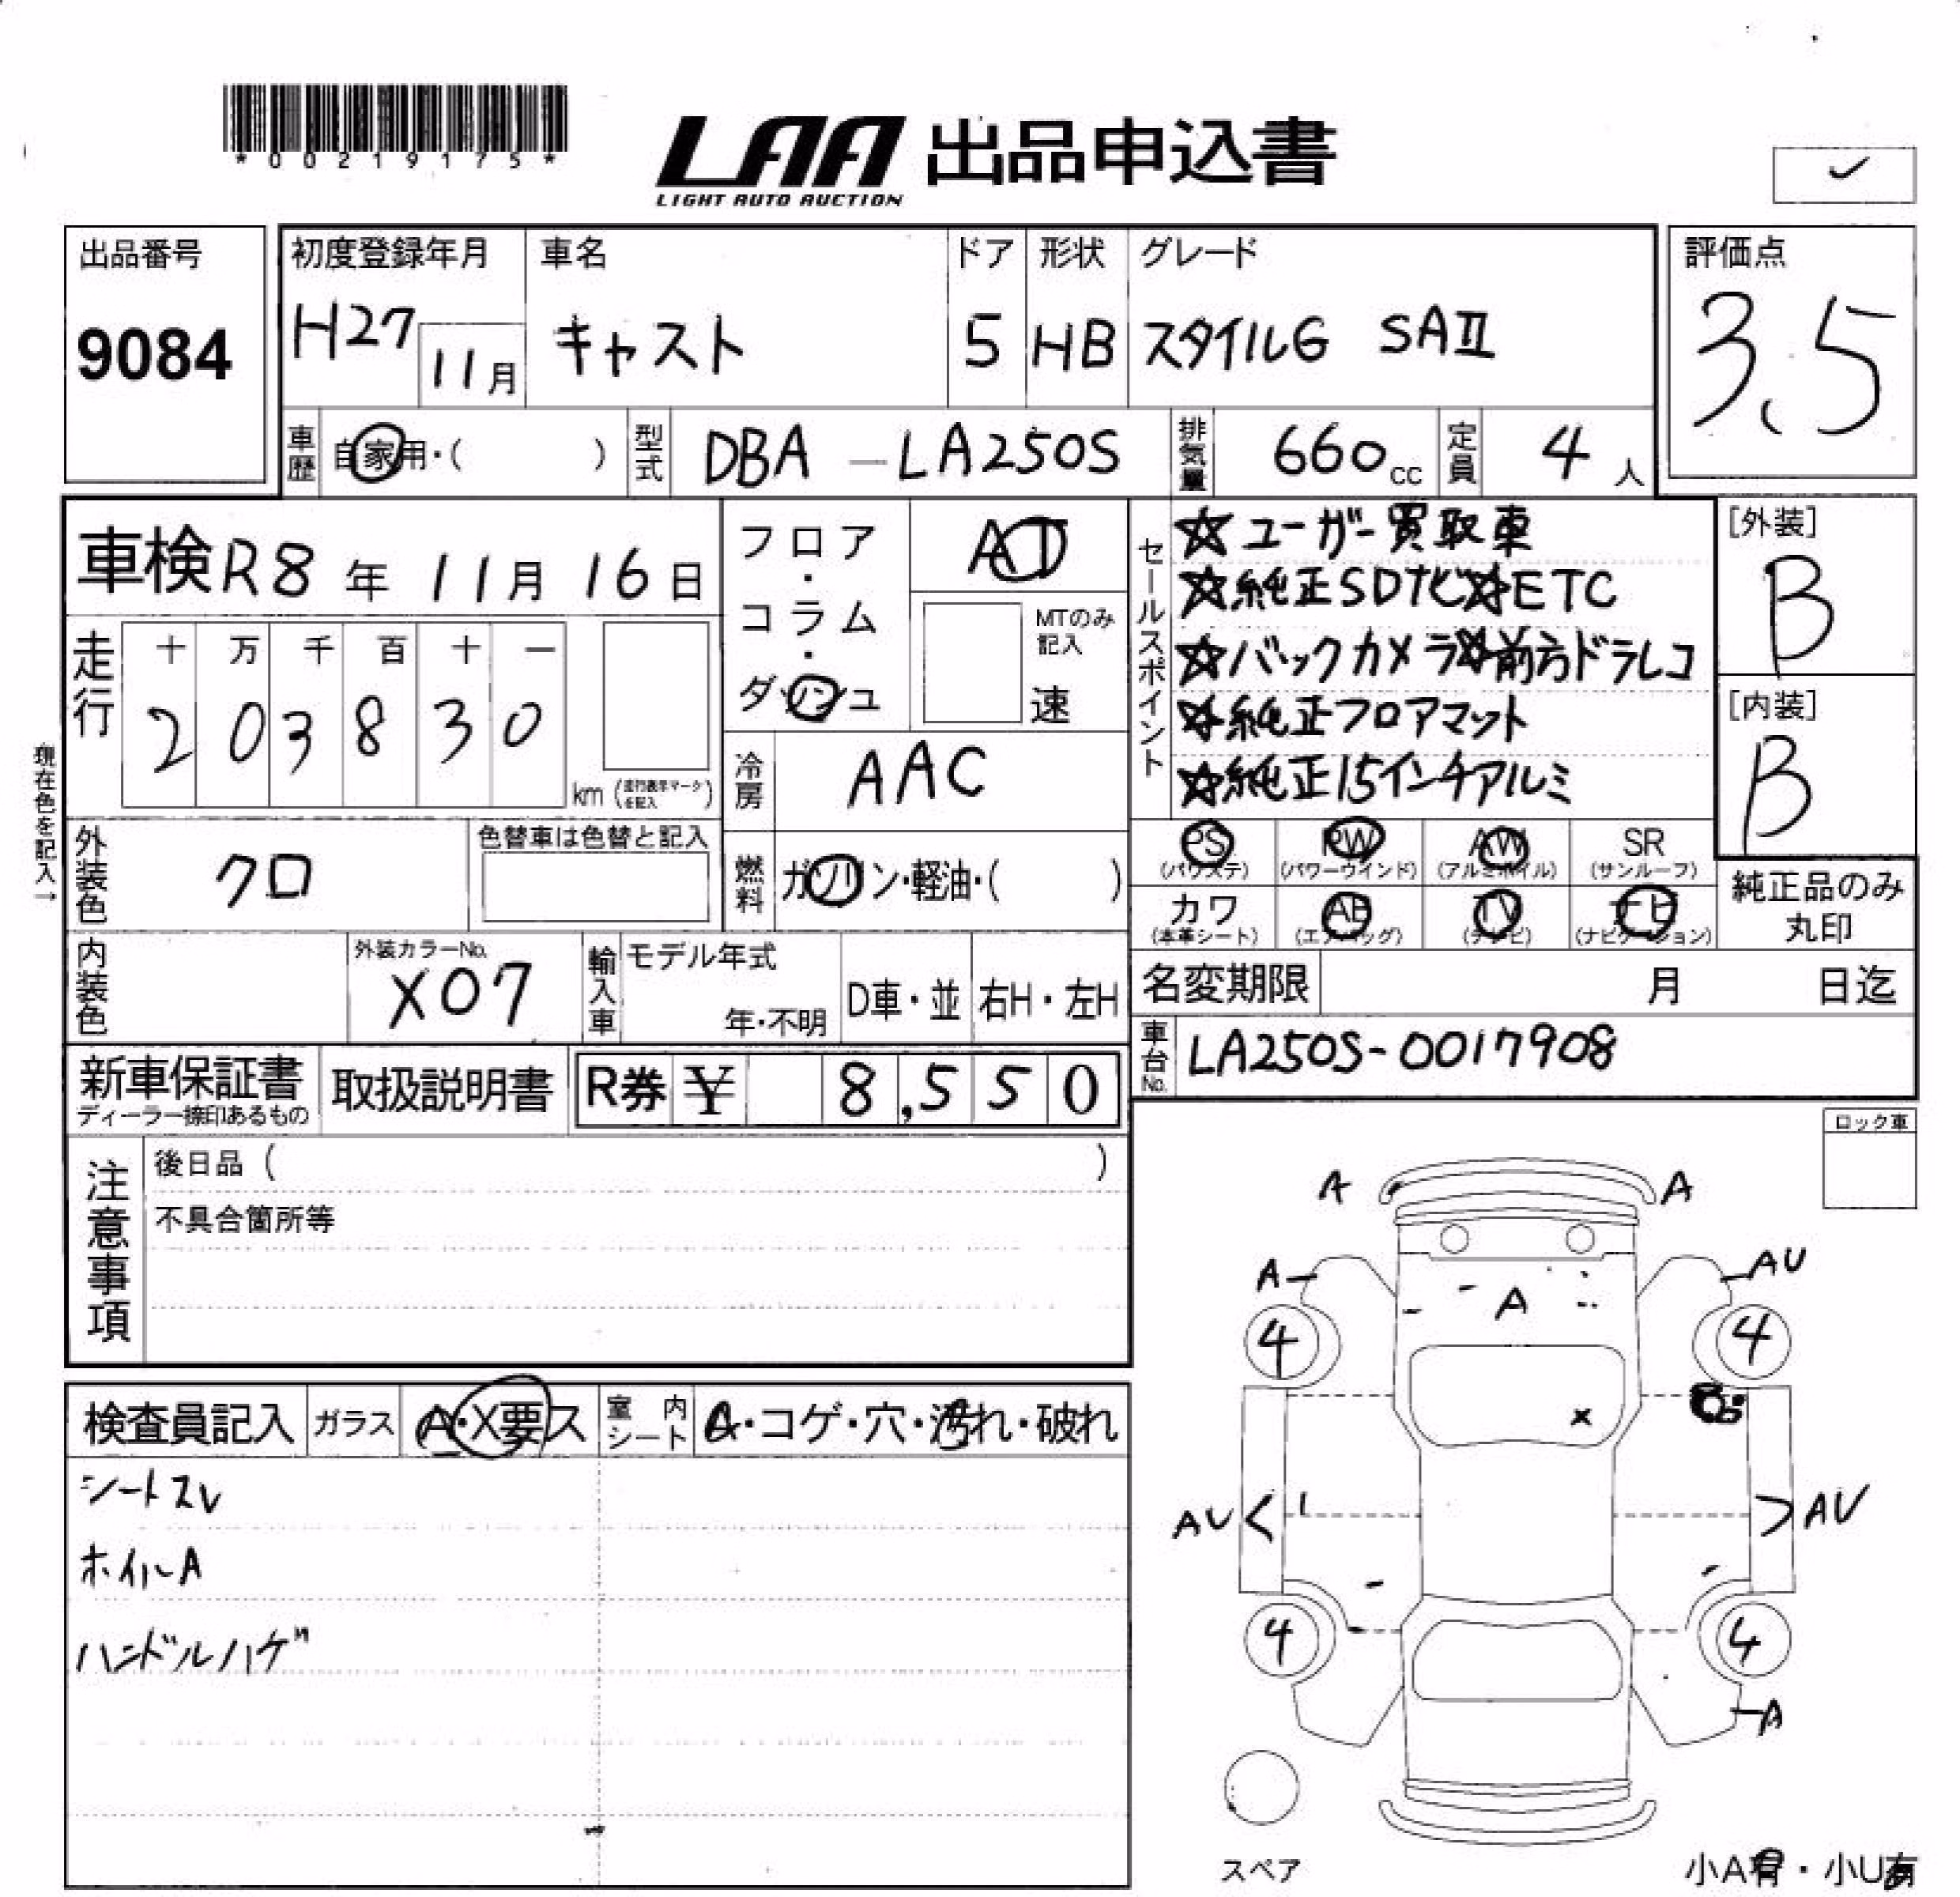 *00219175*
LAA 出品申込書
LIGHT AUTO AUCTION
出品番号
9084
初度登録年月
H27 11月
車名
キャスト
ドア
5
形状
HB
グレード
スタイルG SAⅡ
評価点
3.5
車歴 自家用・( )
型式 DBA-LA250S
排気量 660cc
定員 4人
車検 R8年 11月 16日
走行
十 万 千 百 十 一
2 0 3 8 3 0
km (走行表示マークを記入)
現在色を記入→
フロア・コラム・ダッシュ
AT
MTのみ記入
速
冷房 AAC
燃料 ガソリン・軽油・( )
セールスポイント
☆ユーザー買取車
☆純正SDナビ☆ETC
☆バックカメラ☆前方ドラレコ
☆純正フロアマット
☆純正15インチアルミ
[外装]
B
[内装]
B
外装色 クロ
色替車は色替と記入
PS (パワステ)
PW (パワーウインド)
AW (アルミホイル)
SR (サンルーフ)
カワ (本革シート)
AB (エアバッグ)
TV (テレビ)
ナビ (ナビゲーション)
純正品のみ
丸印
内装色
外装カラーNo.
X07
輸入車
モデル年式
年・不明
D車・並
右H・左H
名変期限 月 日迄
車台No. LA250S-0017908
新車保証書
ディーラー捺印あるもの
取扱説明書
R券 ¥ 8,550
ロック車
注意事項
後日品 ( )
不具合箇所等
検査員記入
ガラス A・X要ス
室内シート A・コゲ・穴・汚れ・破れ
シートスレ
ホイルA
ハンドルハゲ
A A
A AU
A
4 4
X
AU AU
4 4
A
スペア
小A有・小U有